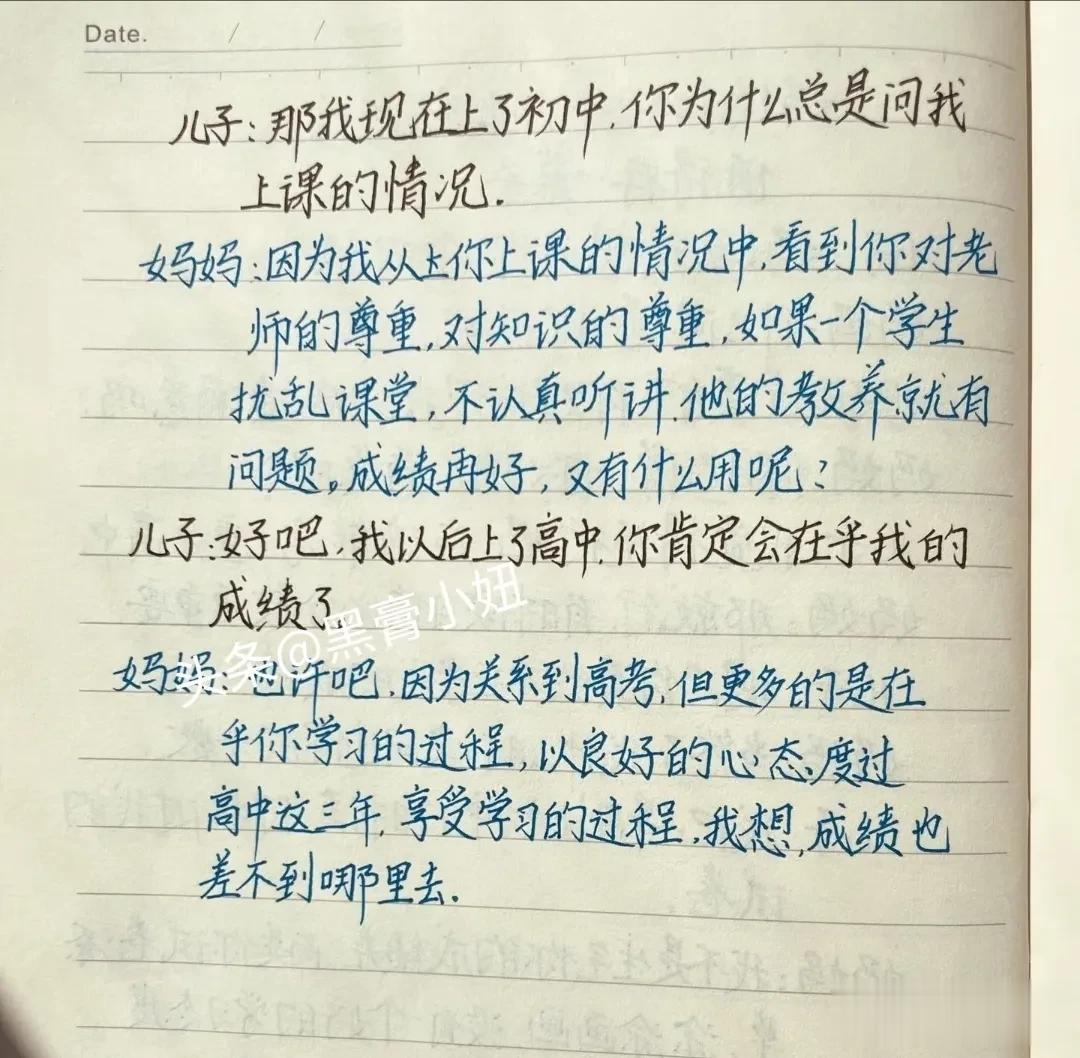 Date. / /
儿子:那我现在上了初中,你为什么总是问我
上课的情况.
妈妈:因为我从你上课的情况中,看到你对老
师的尊重,对知识的尊重,如果一个学生
扰乱课堂,不认真听讲,他的教养就有
问题。成绩再好,又有什么用呢?
儿子:好吧,我以后上了高中,你肯定会在乎我的
成绩了
妈妈:也许吧,因为关系到高考,但更多的是在
乎你学习的过程,以良好的心态度过
高中这三年,享受学习的过程,我想,成绩也
差不到哪里去.
头条@黑膏小妞